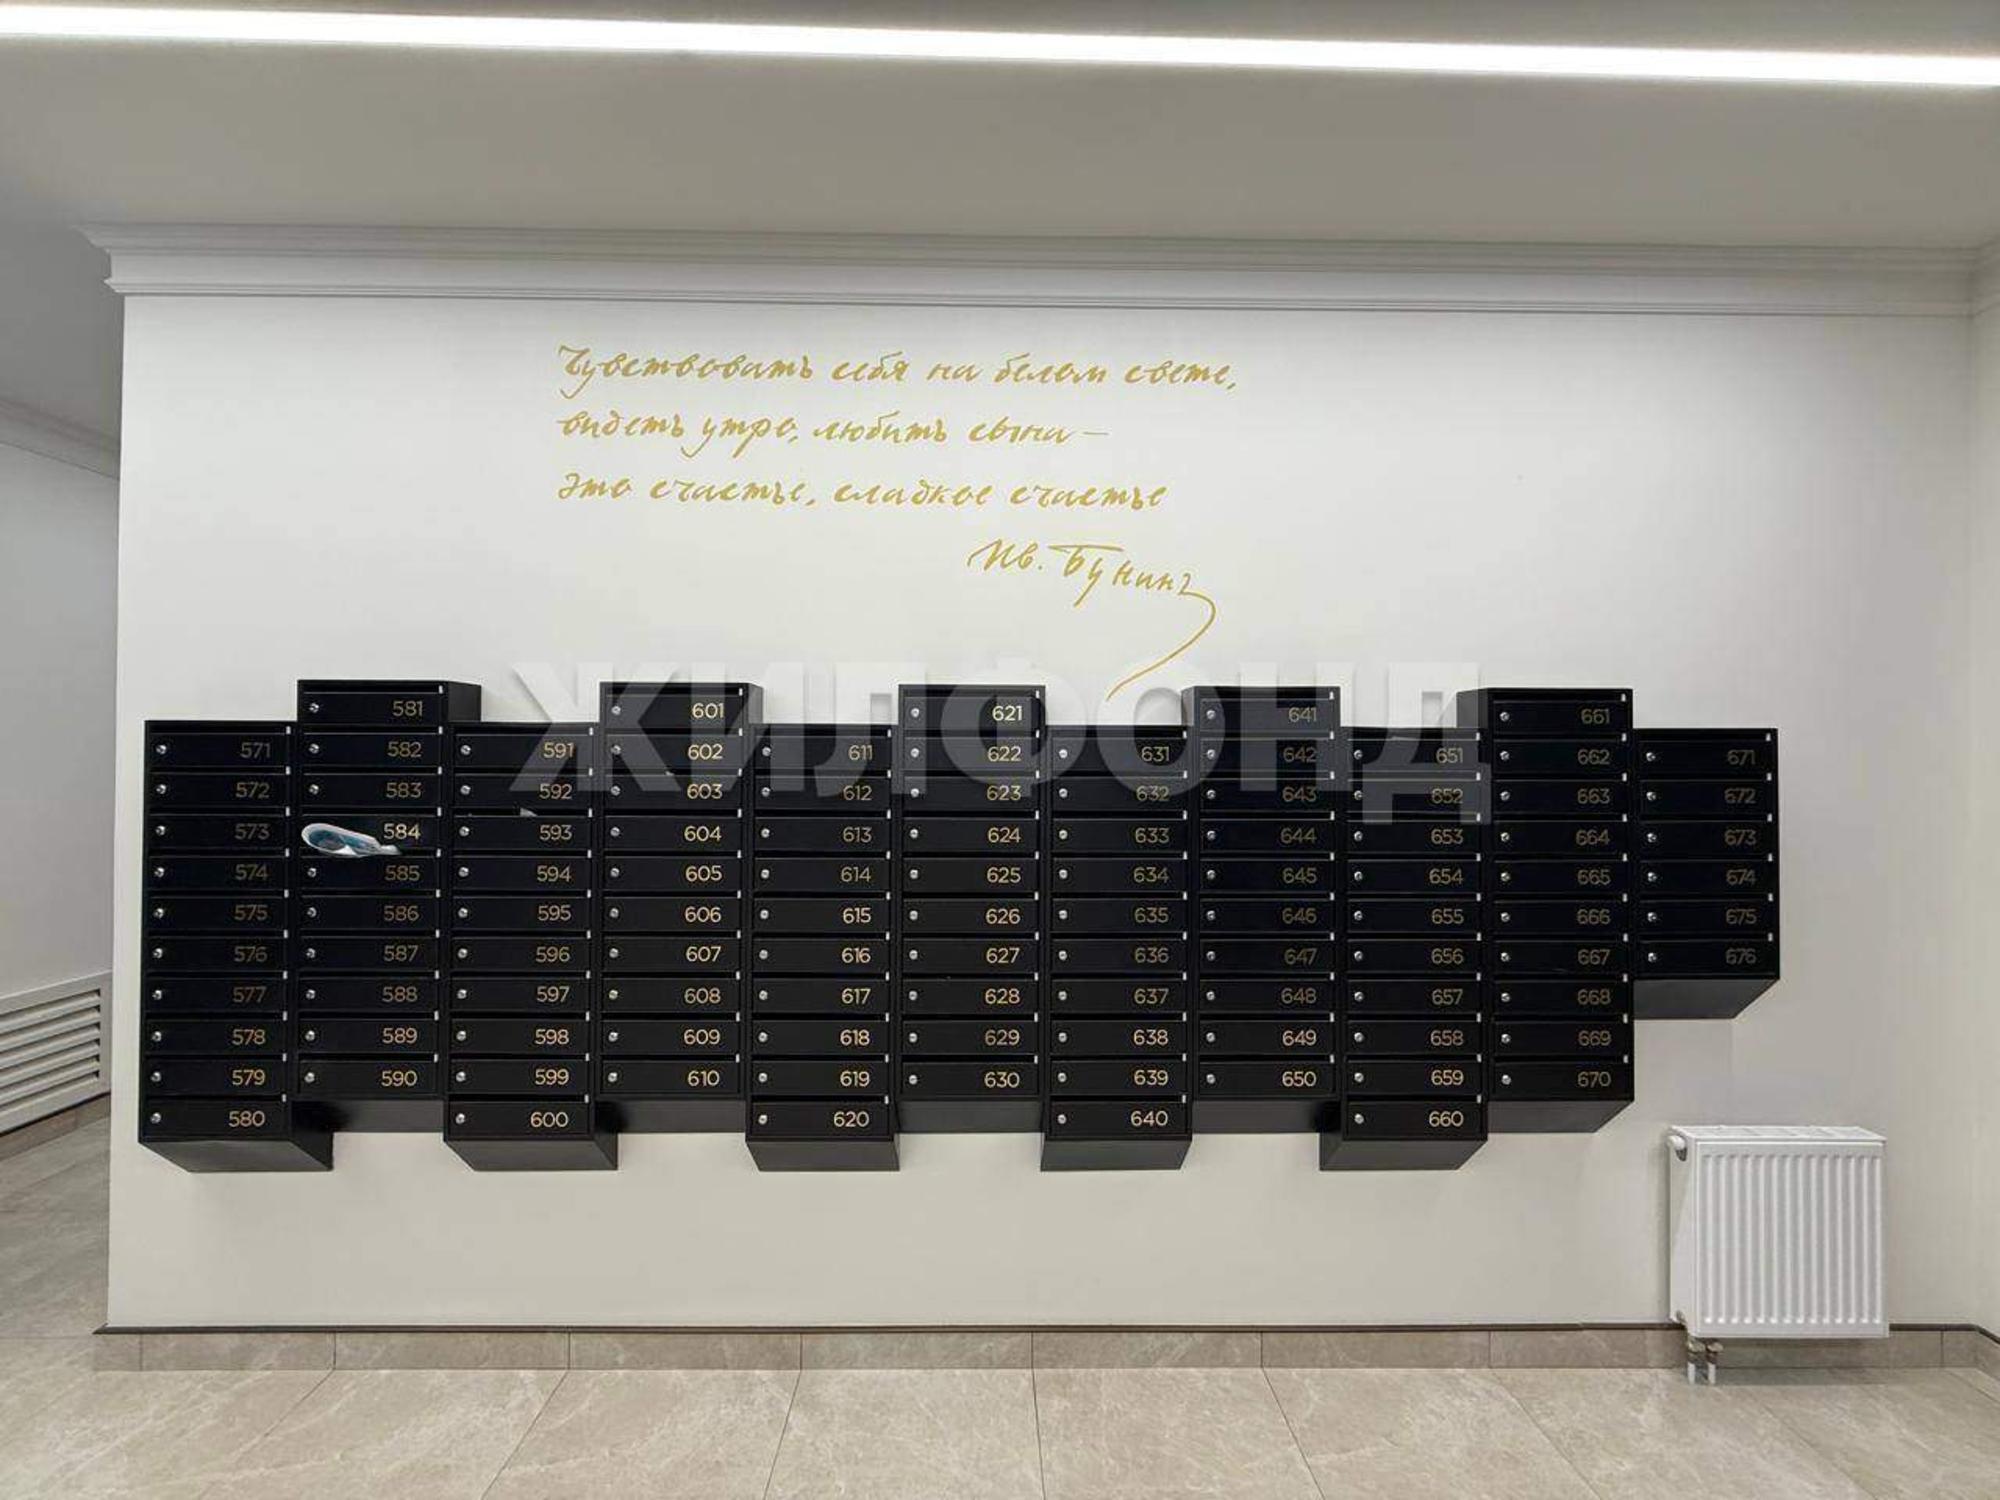 Чувствовать себя на белом свете,
видеть утро, любить сына —
это счастье, сладкое счастье
Ив. Бунинъ
ЖИЛФОНД
581 601 621 641 661
571 582 591 602 611 622 631 642 651 662 671
572 583 592 603 612 623 632 643 652 663 672
573 584 593 604 613 624 633 644 653 664 673
574 585 594 605 614 625 634 645 654 665 674
575 586 595 606 615 626 635 646 655 666 675
576 587 596 607 616 627 636 647 656 667 676
577 588 597 608 617 628 637 648 657 668
578 589 598 609 618 629 638 649 658 669
579 590 599 610 619 630 639 650 659 670
580 600 620 640 660